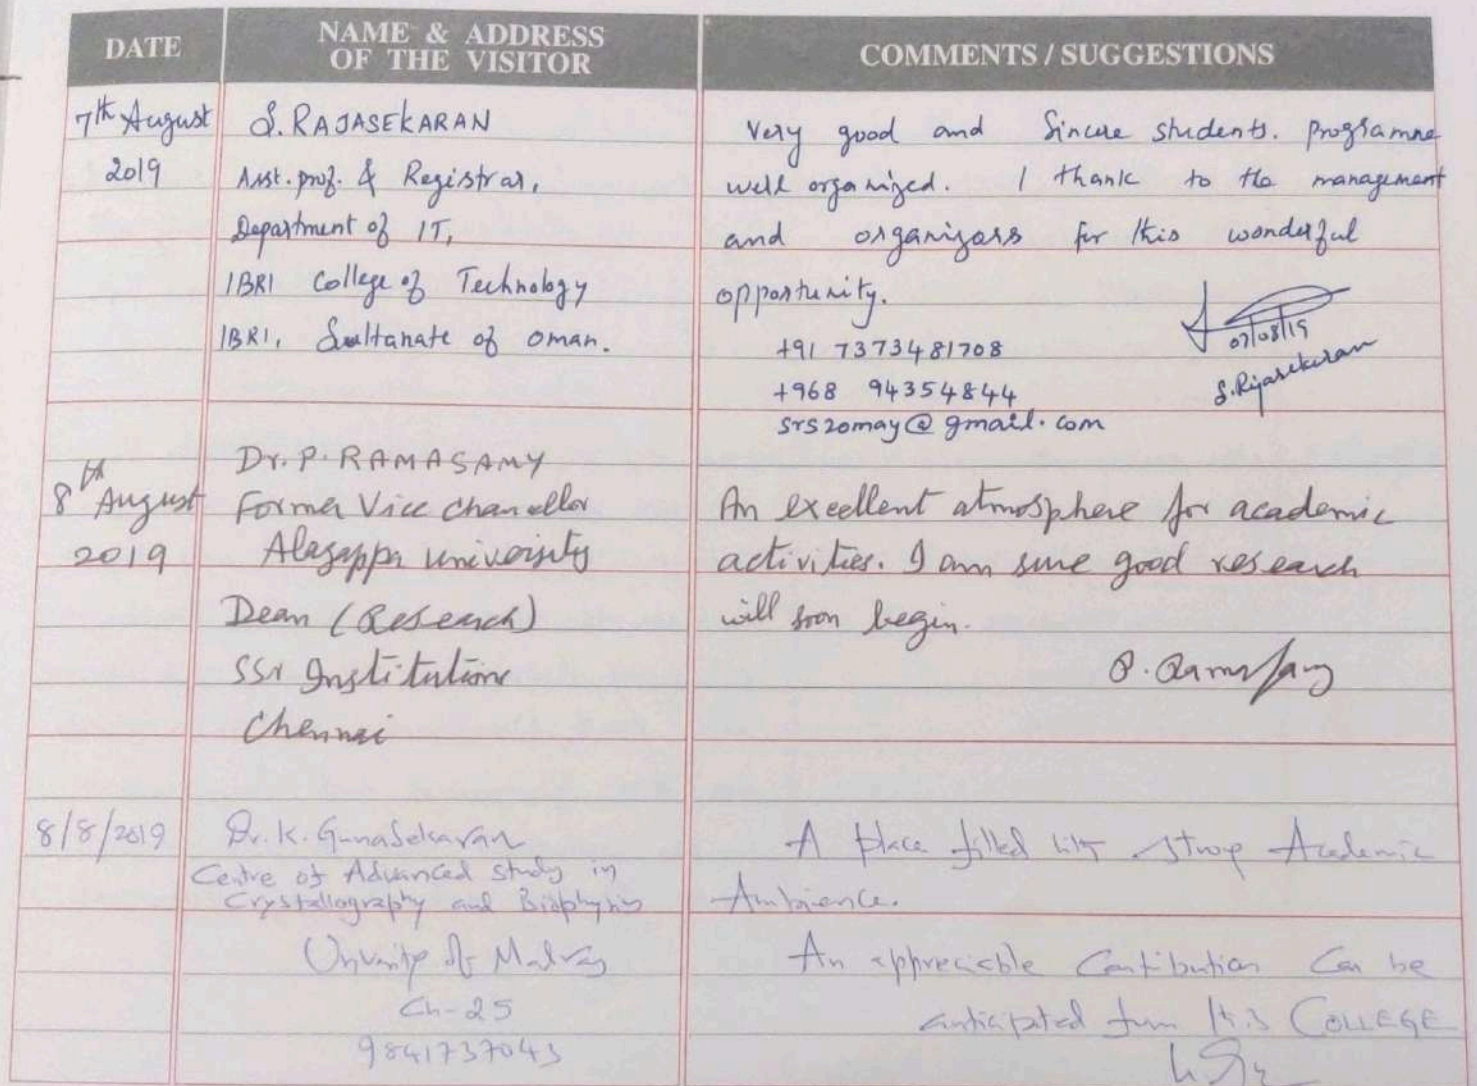 DATE
NAME & ADDRESS
OF THE VISITOR
COMMENTS / SUGGESTIONS
7th August
2019
S. RAJASEKARAN
Asst. prof. & Registrar,
Department of IT,
IBRI College of Technology
IBRI, Sultanate of Oman.
Very good and Sincere students. programme
well organized. I thank to the management
and organizors for this wonderful
opportunity.
+91 7373481708
+968 94354844
srs20may@gmail.com
07/08/19
S. Rajasekaran
8th August
2019
Dr. P. RAMASAMY
Former Vice chancellor
Alagappa university
Dean (Research)
SSN Institutions
Chennai
An excellent atmosphere for academic
activities. I am sure good research
will soon begin.
P. Ramasamy
8/8/2019
Dr. K. Gunasekaran
Centre of Advanced study in
Crystallography and Biophysics
University of Madras
Ch-25
9841737043
A place filled with strong Academic
Ambience.
An appreciable Contribution Can be
anticipated from this COLLEGE